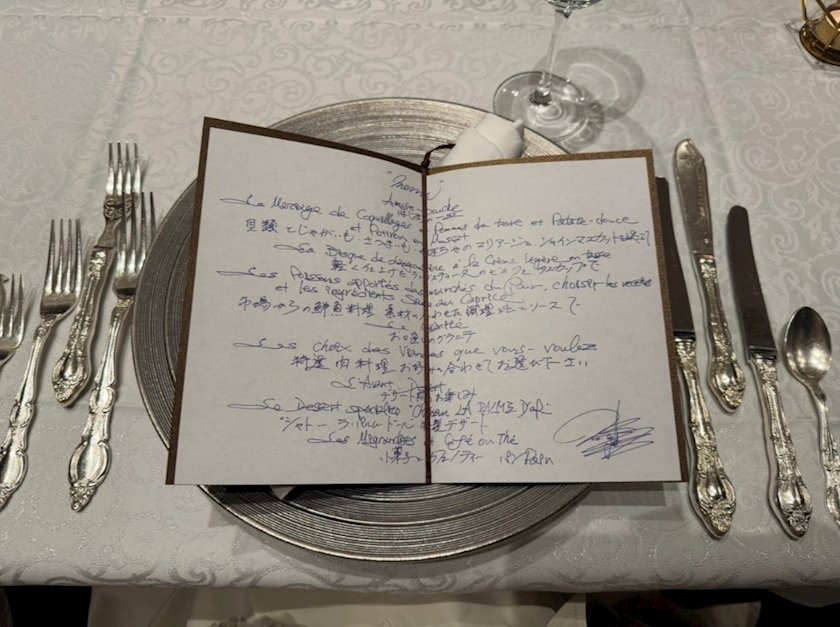 "Menu"
Amuse-bouche
Le Mariage de Coquillages Pommes de terre et Patate-douce
et Potiron en Muscat
貝類とじゃがいも さつまいも かぼちゃのマリアージュ シャインマスカット
La Bisque de à la Crème légère en tasse
軽く仕上げた のビスク カップで
Les Poissons apportés des marchés du Jour, choisir les recettes
et les ingrédients Sauce au Caprice
市場からの鮮魚料理 素材に合わせた調理法とソースで
Le Granité
お口直しのグラニテ
Les choix des Viandes que vous-voulez
特選肉料理 お好みに合わせてお選び下さい
L'Avant Dessert
デザート前のお楽しみ
Le Dessert spécialité "Château LA PALME D'OR"
"シャトー ラ・パルム・ドール" 特製デザート
Les Mignardises et Café ou Thé
小菓子とカフェ/ティー ou Pain